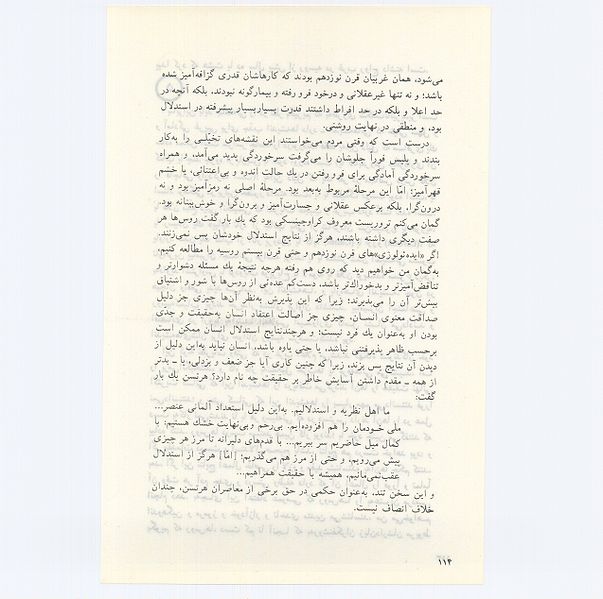 می‌شود، همان غربیان قرن نوزدهم بودند که کارهاشان قدری گزافه‌آمیز شده
باشد؛ و نه تنها غیرعقلانی و درخود فرو رفته و بیمارگونه نبودند، بلکه آنچه در
حد اعلا و بلکه در حد افراط داشتند قدرت بسیاربسیار پیشرفته در استدلال
بود، و منطقی در نهایت روشنی.
درست است که وقتی مردم می‌خواستند این نقشه‌های تخیّلی را به‌کار
بندند و پلیس فوراً جلوشان را می‌گرفت سرخوردگی پدید می‌آمد، و همراه
سرخوردگی آمادگی برای فرو رفتن در یك حالت اندوه و بی‌اعتنائی، یا خشم
قهرآمیز؛ امّا این مرحلهٔ مربوط به‌بعد بود. مرحلهٔ اصلی نه رمزآمیز بود و نه
درون‌گرا، بلکه برعکس عقلانی و جسارت‌آمیز و برون‌گرا و خوش‌بینانه بود.
گمان می‌کنم تروریست معروف کراوچینسکی بود که یك بار گفت روس‌ها هر
صفت دیگری داشته باشند، هرگز از نتایج استدلال خودشان پس نمی‌زنند.
اگر «ایده‌ئولوژی»های قرن نوزدهم و حتی قرن بیستم روسیه را مطالعه کنیم،
به‌گمان من خواهیم دید که روی هم رفته هرچه نتیجهٔ یك مسئله دشوارتر و
تناقض‌آمیزتر و بدخوراك‌تر باشد، دست‌کم عده‌ئی از روس‌ها با شور و اشتیاق
بیش‌تر آن را می‌پذیرند؛ زیرا که این پذیرش به‌نظر آن‌ها چیزی جز دلیل
صداقت معنوی انسان، چیزی جز اصالت اعتقاد انسان به‌حقیقت و جدی
بودن او به‌عنوان یك فرد نیست؛ و هرچندنتایج استدلال انسان ممکن است
برحسب ظاهر پذیرفتنی نباشد، یا حتی یاوه باشد، انسان نباید به‌این دلیل از
دیدن آن نتایج پس بزند، زیرا که چنین کاری آیا جز ضعف و بزدلی، یا ــ بدتر
از همه ــ مقدم داشتن آسایش خاطر بر حقیقت چه نام دارد؟ هرتسن یك بار
گفت:
ما اهل نظریه و استدلالیم. به‌این دلیل استعداد آلمانی عنصر...
ملی خـودمان را هم افزوده‌ایم. بی‌رحم و بی‌نهایت خشك هستیم: با
کمال میل حاضریم سر ببریم... با قدم‌های دلیرانه تا مرز هر چیزی
پیش می‌رویم، و حتی از مرز هم می‌گذریم؛ [امّا] هرگز از استدلال
عقب‌نمی‌مانیم، همیشه با حقیقت همراهیم...
و این سخن تند، به‌عنوان حکمی در حق برخی از معاصران هرتسن، چندان
خلاف انصاف نیست.
۱۱۴